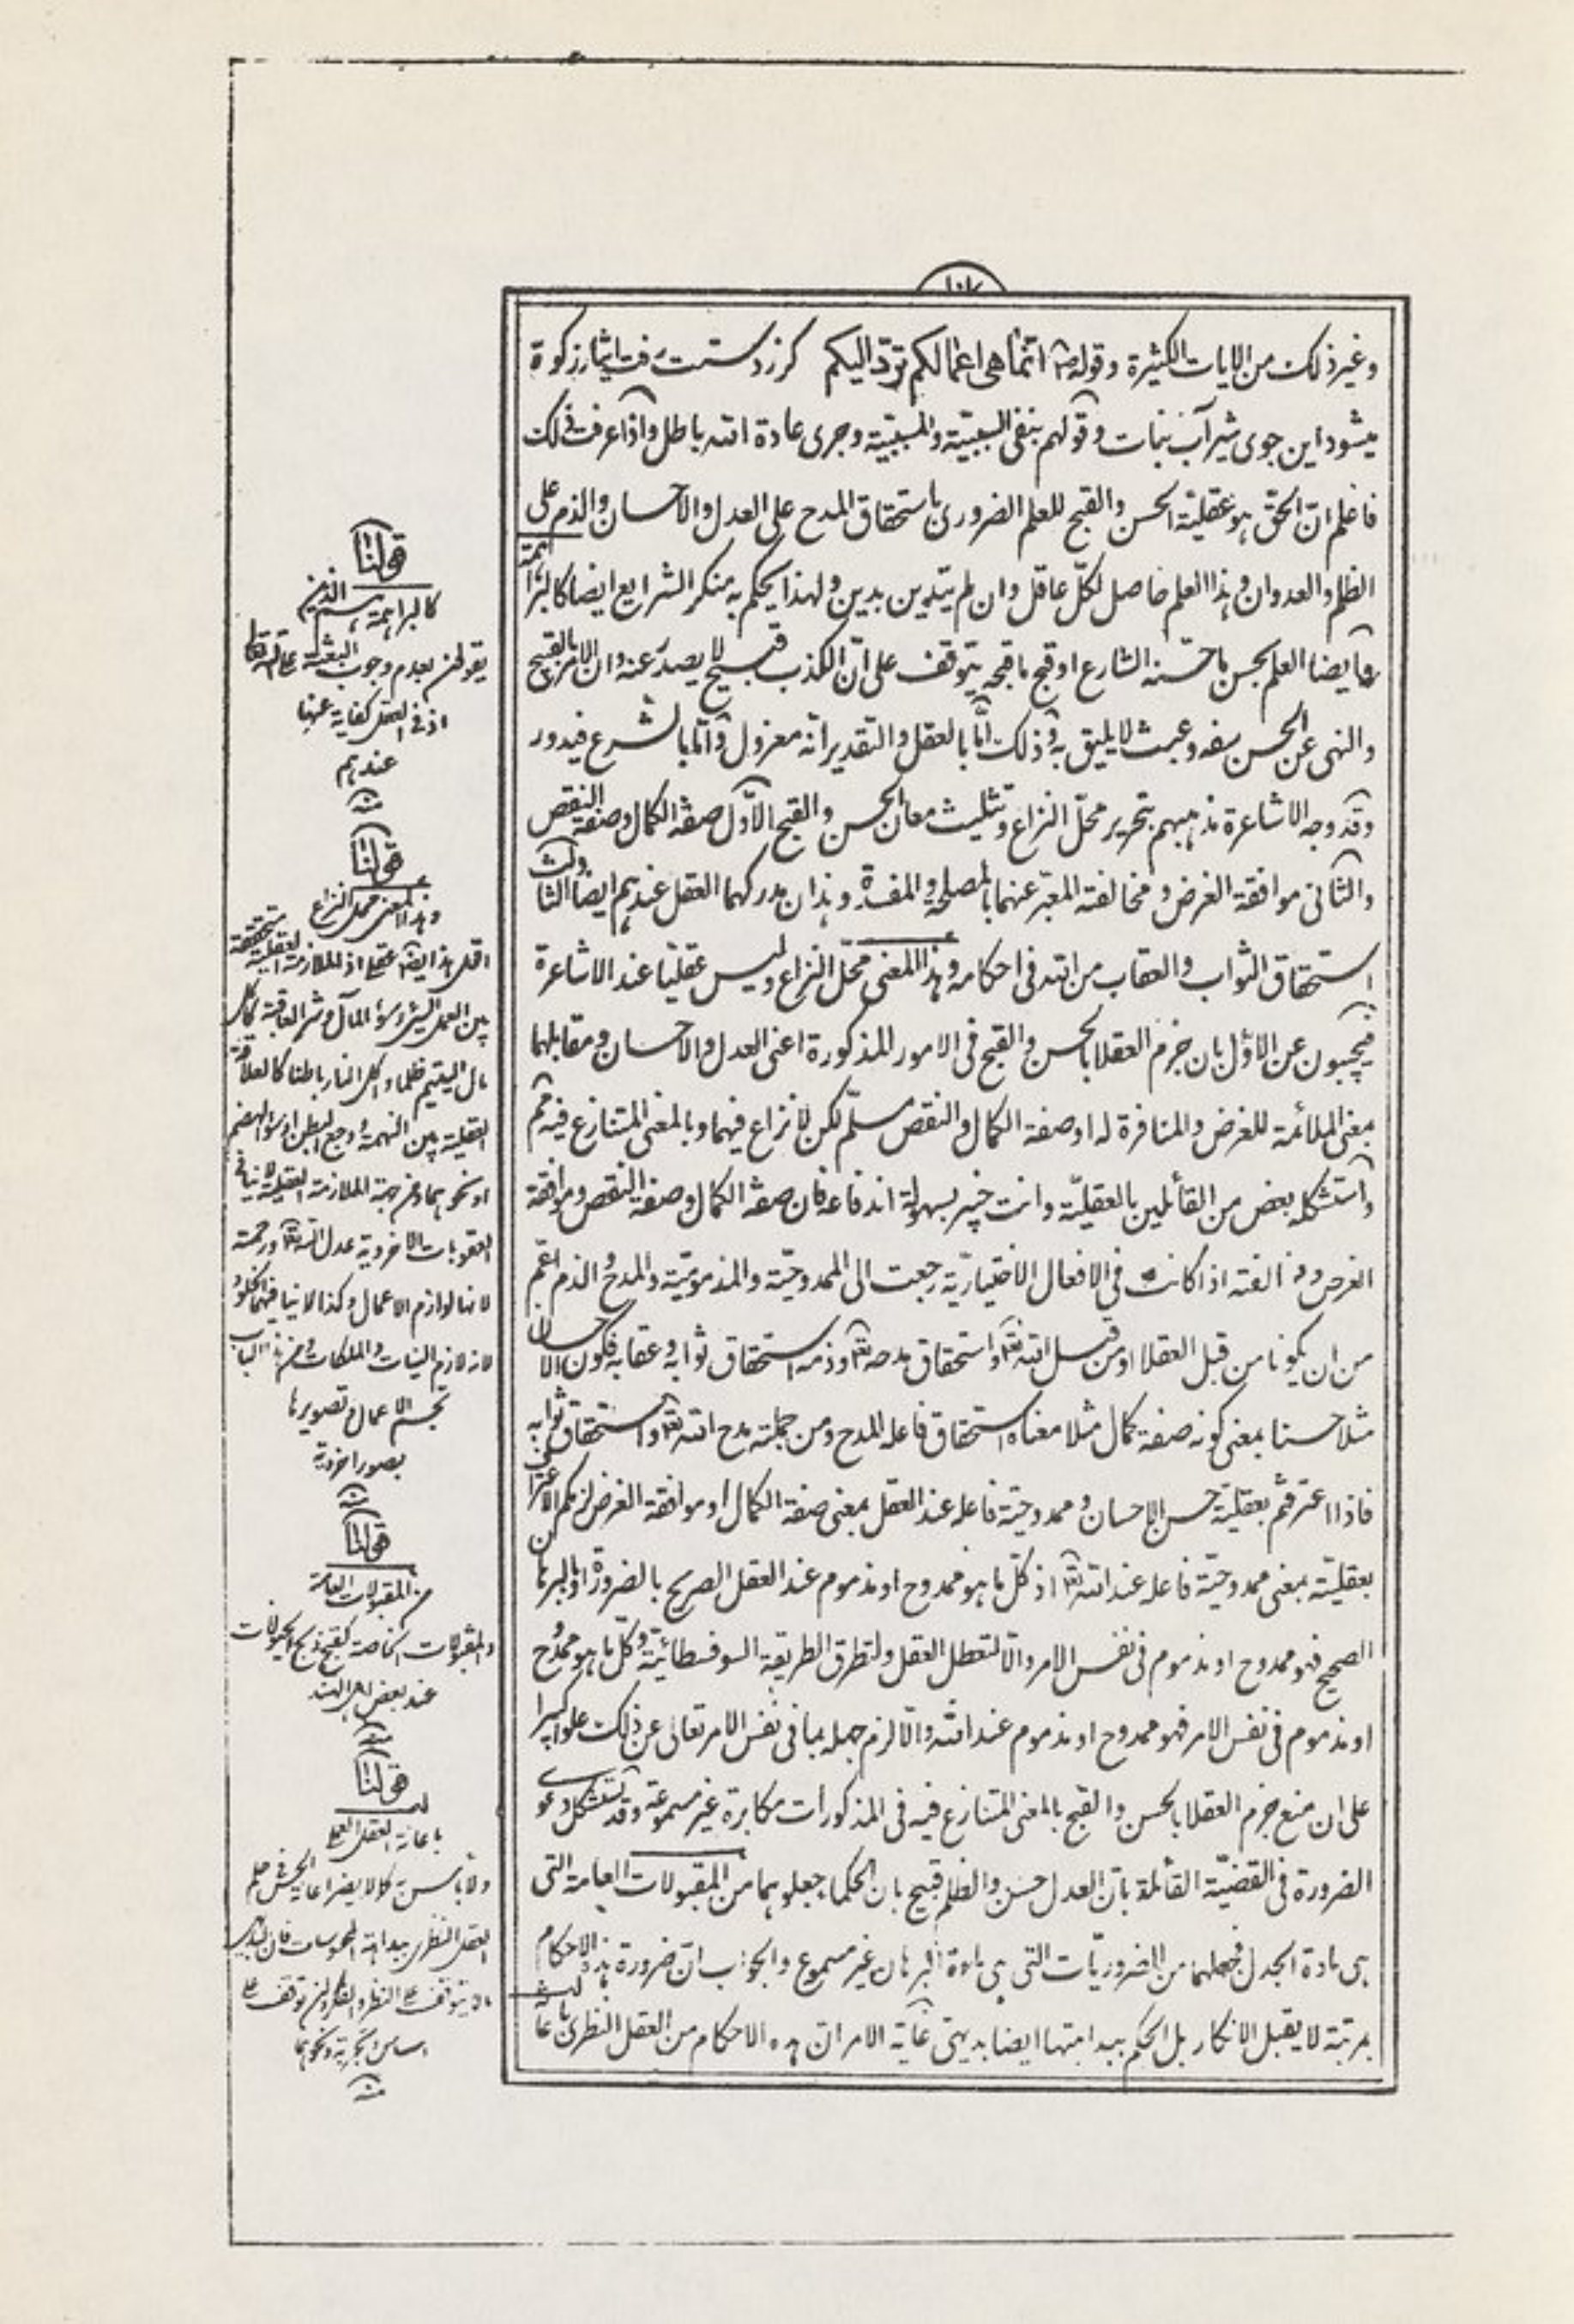 وغير ذلك من الايات الكثيرة وقوله ص انما هى اعمالكم تردّ اليكم كرز دستت رفت ايثار زكوة
ميشود اين جوى شير آب نبات وقولهم بنفى السببيّة والمسببيّة وجرى عادة الله باطل واذا عرفت ذلك
فاعلم انّ الحقّ هو عقليّة الحسن والقبح للعلم الضرورى باستحقاق المدح على العدل والاحسان والذم على
الظلم والعدوان وهذا العلم حاصل لكلّ عاقل وان لم يتدين بدين ولهذا يحكم به منكر الشرايع ايضا كالبراهمة
وايضا العلم بحسن ما حسّنه الشارع او قبح ما قبحه يتوقف على انّ الكذب قبيح لا يصدر عنه وان الامر بالقبيح
والنهى عن الحسن سفه وعبث لا يليق به وذلك امّا بالعقل والتقدير انّه معزول وامّا بالشرع فيدور
وقد وجه الاشاعرة مذهبهم بتحرير محلّ النزاع وتثليث معان الحسن والقبح الاوّل صفة الكمال وصفة النقص
والثانى موافقة الغرض ومخالفته المعبّر عنهما بالمصلحة والمفسدة وهذان مدركهما العقل عندهم ايضا الثالث
استحقاق الثواب والعقاب من الله فى احكامه وهذا المعنى محلّ النزاع وليس عقليّا عند الاشاعرة
فيجيبون عن الاوّل بان جزم العقلا بالحسن والقبح فى الامور المذكورة اعنى العدل والاحسان ومقابلهما
بمعنى الملائمة للغرض والمنافرة له او صفة الكمال والنقص مسلّم لكن لا نزاع فيهما وبالمعنى المتنازع فيه مم
واستشكله بعض من القائلين بالعقليّة وانت خبير بسهولة اندفاعه فان صفة الكمال وصفة النقص وموافقة
الغرض ومخالفته اذا كانت فى الافعال الاختياريّة رجعت الى الممدوحيّة والمذموميّة والمدح والذم اعّم
من ان يكونا من قبل العقلا او من قبل الله تعه واستحقاق مدحه تعه وذمه استحقاق ثوابه وعقابه فكون الاحسان
مثلا حسنا بمعنى كونه صفة كمال مثلا معناه استحقاق فاعله المدح ومن جملته مدح الله تعه واستحقاق ثوابه
فاذا اعترفتم بعقليّة حسن الاحسان وممدوحيّة فاعله عند العقل بمعنى صفة الكمال او موافقة الغرض لزمكم الاعتراف
بعقليّته بمعنى ممدوحيّة فاعله عند الله تعه اذ كلّ ما هو ممدوح او مذموم عند العقل الصريح بالضرورة او بالبرهان
الصحيح فهو ممدوح او مذموم فى نفس الامر والّا لتعطل العقل ولتطرق الطريقة السوفسطائيّة وكلّ ما هو ممدوح
او مذموم فى نفس الامر فهو ممدوح او مذموم عند الله والّا لزم جهله بما فى نفس الامر تعالى عن ذلك علوا كبيرا
على ان منع جزم العقلا بالحسن والقبح بالمعنى المتنازع فيه فى المذكورات مكابرة غير مسموعة وقد يستشكل دعوى
الضرورة فى القضيّة القائلة بانّ العدل حسن والظلم قبيح بان الحكماء جعلوهما من المقبولات العامة التى
هى مادة الجدل فجعلهما من الضروريّات التى هى مادة البرهان غير مسموع والجواب انّ ضرورة هذه الاحكام
بمرتبة لا يقبل الانكار بل الحكم ببداهتها ايضا بديهى غاية الامر انّ هذه الاحكام من العقل النظرى باعانة
قولنا
كالبراهمة هم الذين
يقولون بعدم وجوب البعثة على الله تعالى
اذ فى العقل كفاية عنها
عندهم
منه
قولنا
وهذا المعنى محل النزاع
اقول هذا ايضا عقلى اذ الملازمة العقلية متحققة
بين العمل السيّئ وسؤ المآل وشر العاقبة كاكل
مال اليتيم ظلما واكل النار باطنا كالعلاقة
العقلية بين النهمة ووجع البطن او سؤ الهضم
او نحوهما ومن جهة الملازمة العقلية لا ينافى
العقوبات الاخروية عدل الله تعه ورحمته
لانها لوازم الاعمال وكذا لا ينافيهما الخلود
لانه لازم النيات والملكات ومن هذا الباب
تجسم الاعمال وتصويرها
بصور اخروية
منه
قولنا
من المقبولات العامة
والمقبولات الخاصة كقبح ذبح الحيوانات
عند بعض اهل الهند
منه
قولنا
باعانة العقل العملى
ولا باس به كما لا يضر اعانة الحس فى حكم
العقل النظرى ببداهة المحسوسات فان البديهى
ما لا يتوقف على النظر والفكر وان توقف على
احساس وتجربة ونحوهما
منه